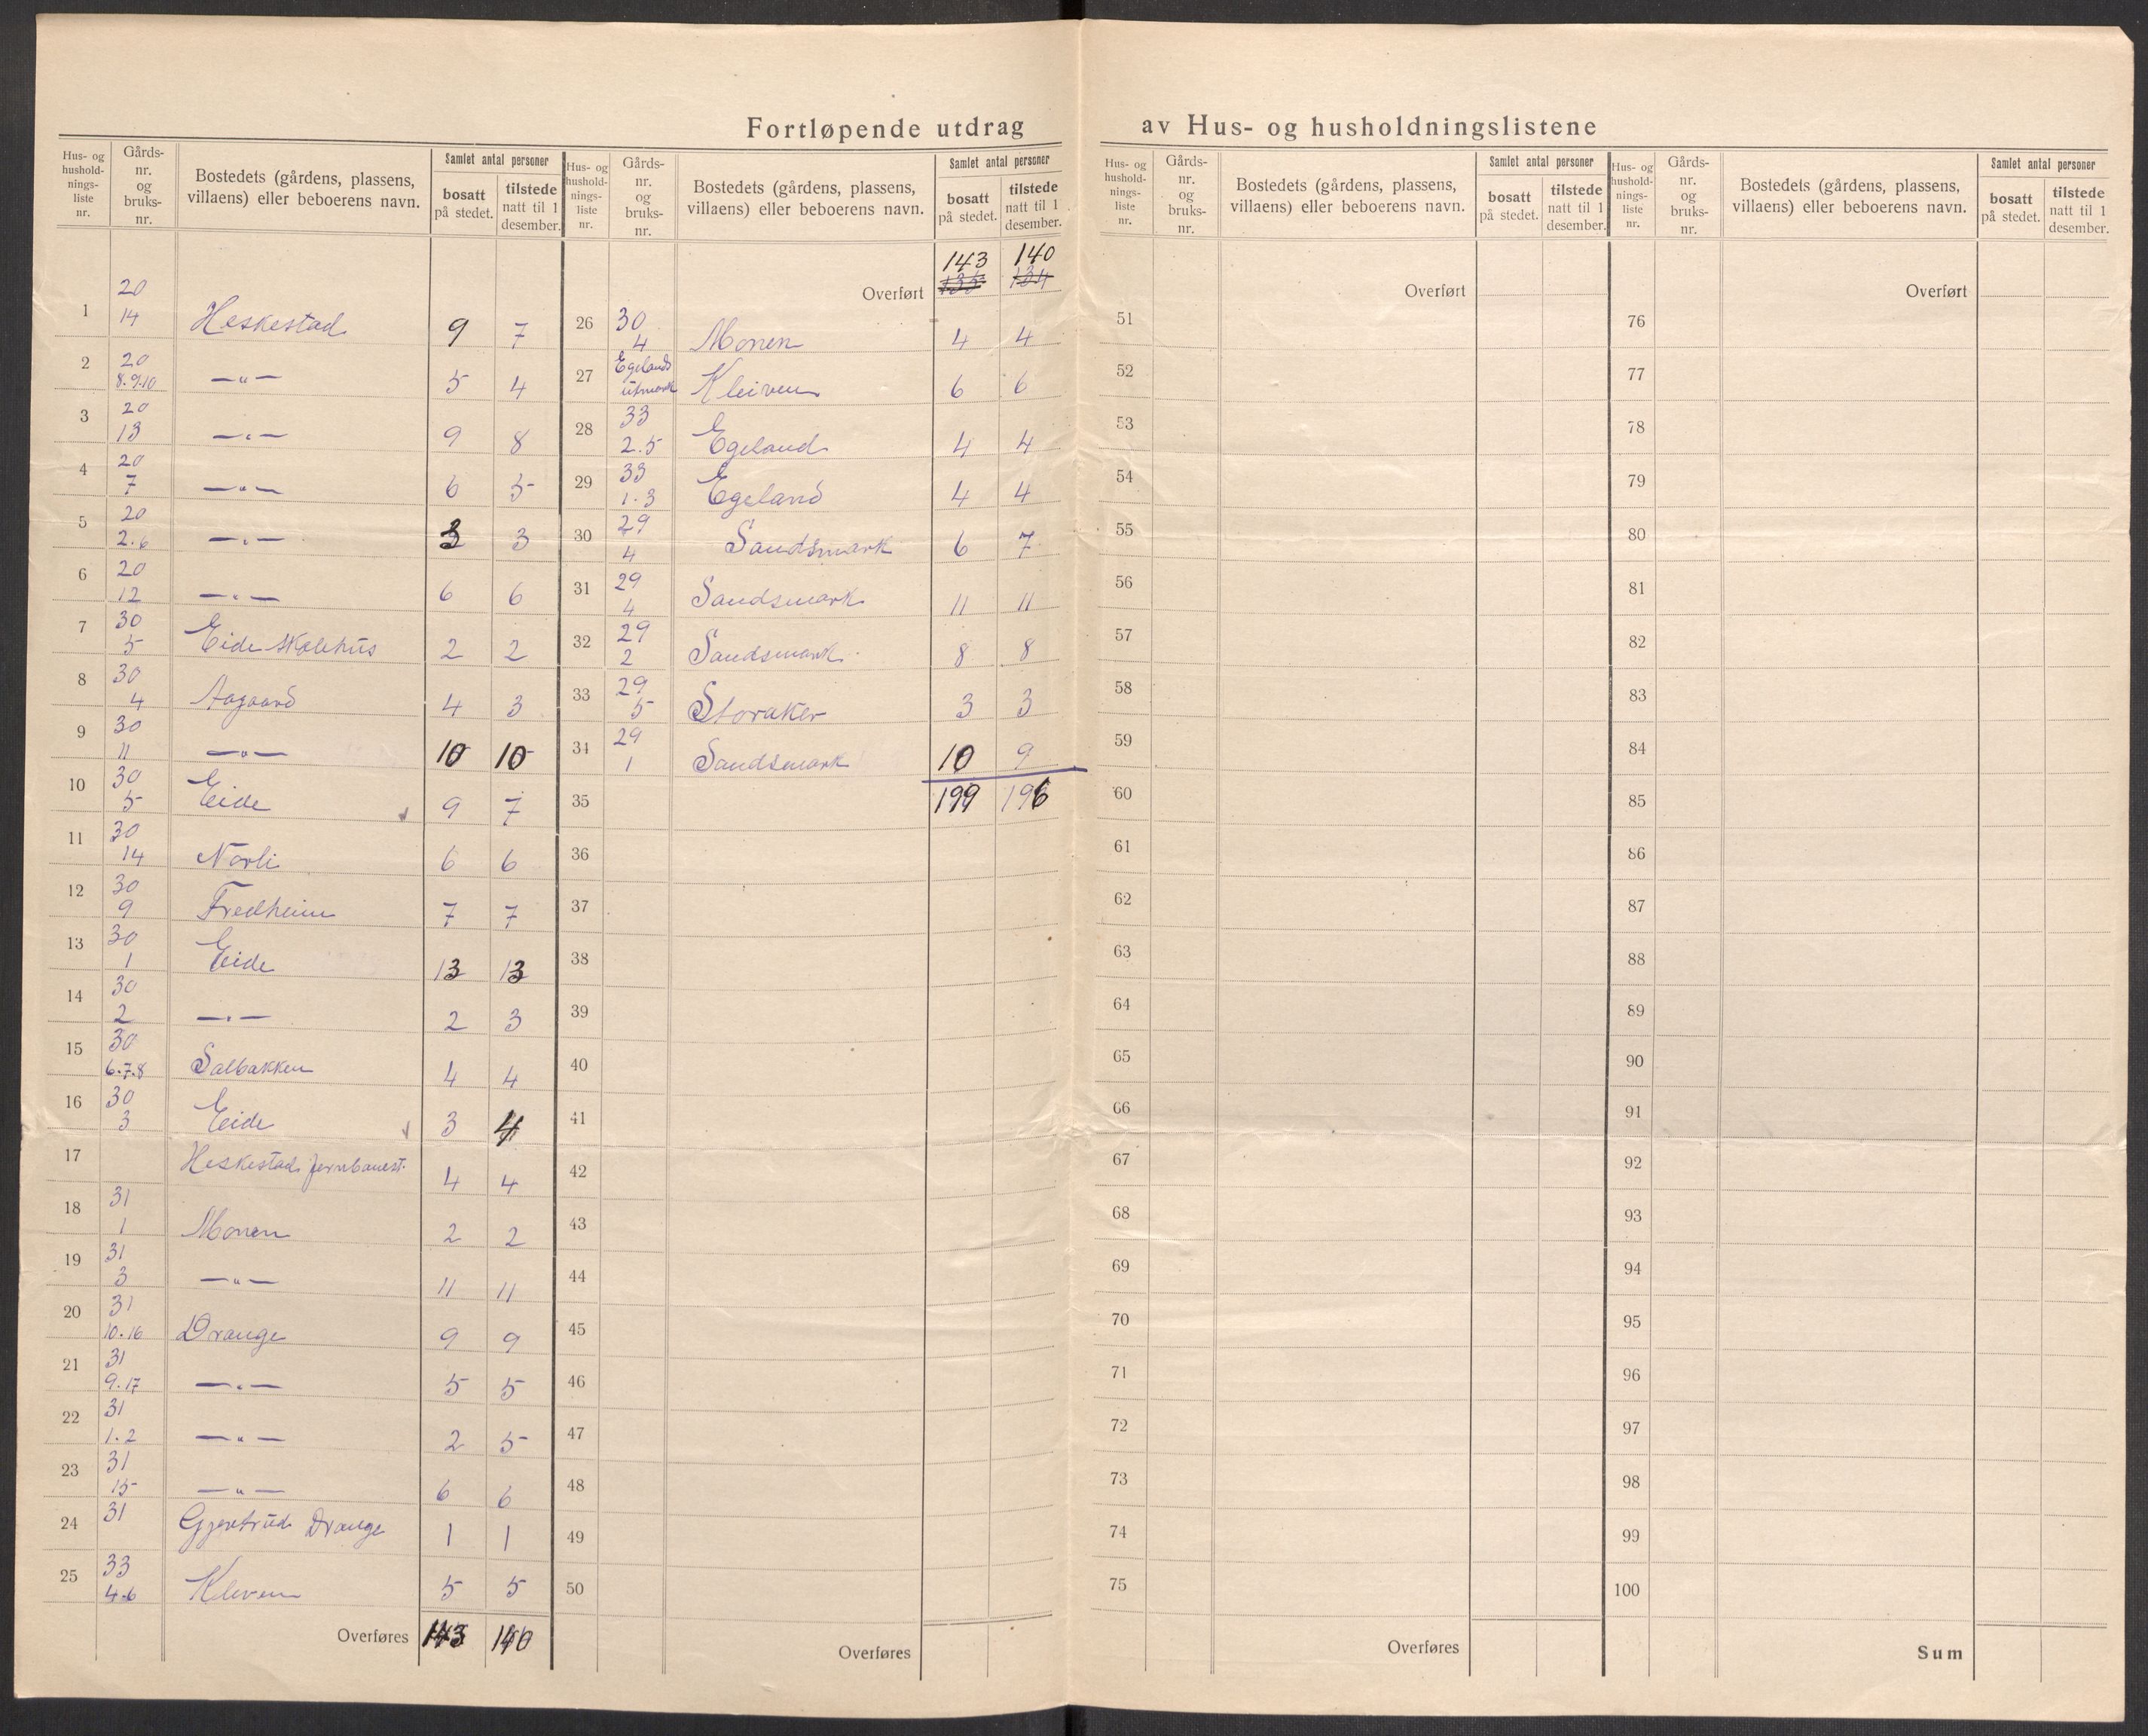 Fortløpende utdrag av Hus- og husholdningslistene
Hus- og husholdningsliste nr. | Gårds-nr. og bruks-nr. | Bostedets (gårdens, plassens, villaens) eller beboerens navn. | Samlet antal personer bosatt på stedet. | tilstede natt til 1 desember.
1 | 20 14 | Heskestad | 9 | 7
2 | 20 8.9.10 | —„— | 5 | 4
3 | 20 13 | —„— | 9 | 8
4 | 20 7 | —„— | 6 | 5
5 | 20 2.6 | —„— | 3 | 3
6 | 20 12 | —„— | 6 | 6
7 | 30 5 | Eide skolehus | 2 | 2
8 | 30 4 | Aagaard | 4 | 3
9 | 30 11 | —„— | 10 | 10
10 | 30 5 | Eide | 9 | 7
11 | 30 14 | Norli | 6 | 6
12 | 30 9 | Fredheim | 7 | 7
13 | 30 1 | Eide | 13 | 13
14 | 30 2 | —„— | 2 | 3
15 | 30 6.7.8 | Salbakken | 4 | 4
16 | 30 3 | Eide | 3 | 4
17 | Heskestad jernbanest. | 4 | 4
18 | 31 1 | Monen | 2 | 2
19 | 31 3 | —„— | 11 | 11
20 | 31 10.16 | Drange | 9 | 9
21 | 31 9.17 | —„— | 5 | 5
22 | 31 1.2 | —„— | 2 | 5
23 | 31 15 | —„— | 6 | 6
24 | 31 | Gjertrud Drange | 1 | 1
25 | 33 4.6 | Kleven | 5 | 5
Overføres | 143 | 140
Hus- og husholdningsliste nr. | Gårds-nr. og bruks-nr. | Bostedets (gårdens, plassens, villaens) eller beboerens navn. | Samlet antal personer bosatt på stedet. | tilstede natt til 1 desember.
143 | 140
Overført | 135 | 134
26 | 30 4 | Monen | 4 | 4
27 | Egelands utmark | Kleiven | 6 | 6
28 | 33 2.5 | Egeland | 4 | 4
29 | 33 1.3 | Egeland | 4 | 4
30 | 29 4 | Sandsmark | 6 | 7
31 | 29 4 | Sandsmark | 11 | 11
32 | 29 2 | Sandsmark | 8 | 8
33 | 29 5 | Storaker | 3 | 3
34 | 29 1 | Sandsmark | 10 | 9
35 | 199 | 196
36
37
38
39
40
41
42
43
44
45
46
47
48
49
50
Overføres
Hus- og husholdningsliste nr. | Gårds-nr. og bruks-nr. | Bostedets (gårdens, plassens, villaens) eller beboerens navn. | Samlet antal personer bosatt på stedet. | tilstede natt til 1 desember.
Overført
51
52
53
54
55
56
57
58
59
60
61
62
63
64
65
66
67
68
69
70
71
72
73
74
75
Overføres
Hus- og husholdningsliste nr. | Gårds-nr. og bruks-nr. | Bostedets (gårdens, plassens, villaens) eller beboerens navn. | Samlet antal personer bosatt på stedet. | tilstede natt til 1 desember.
Overført
76
77
78
79
80
81
82
83
84
85
86
87
88
89
90
91
92
93
94
95
96
97
98
99
100
Sum